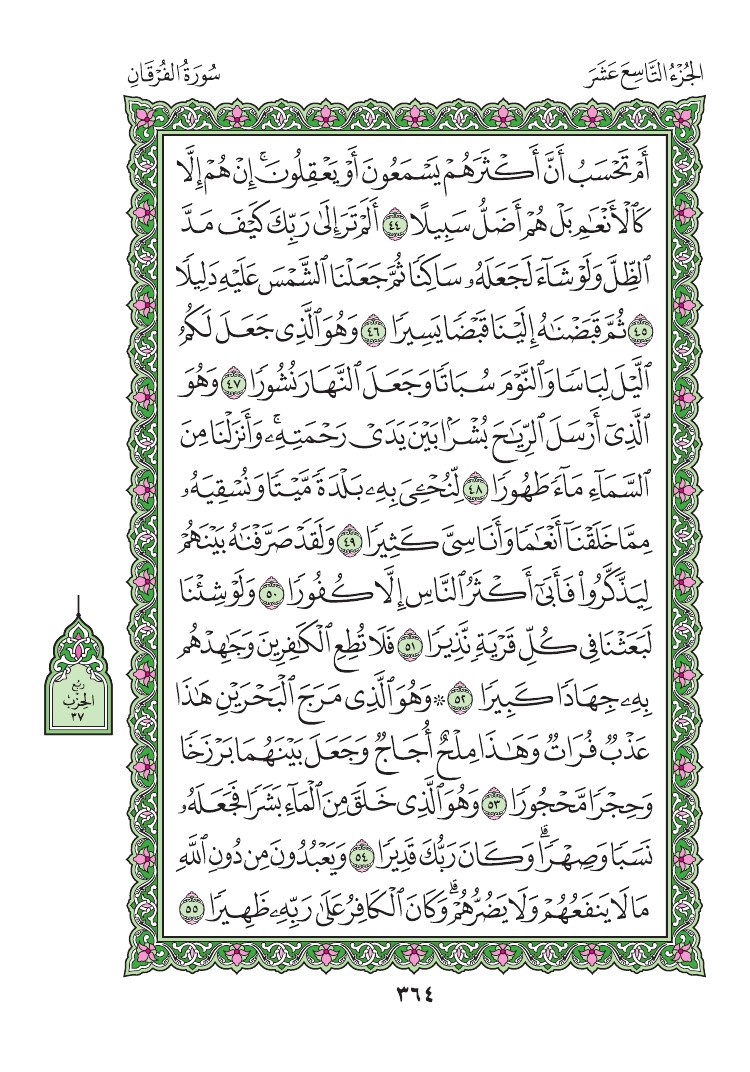 الجُزْءُ التَّاسِعَ عَشَرَ
سُورَةُ الفُرْقَانِ
أَمْ تَحْسَبُ أَنَّ أَكْثَرَهُمْ يَسْمَعُونَ أَوْ يَعْقِلُونَ ۚ إِنْ هُمْ إِلَّا
كَالْأَنْعَٰمِ بَلْ هُمْ أَضَلُّ سَبِيلًا ٤٤ أَلَمْ تَرَ إِلَىٰ رَبِّكَ كَيْفَ مَدَّ
ٱلظِّلَّ وَلَوْ شَآءَ لَجَعَلَهُۥ سَاكِنًا ثُمَّ جَعَلْنَا ٱلشَّمْسَ عَلَيْهِ دَلِيلًا
٤٥ ثُمَّ قَبَضْنَٰهُ إِلَيْنَا قَبْضًا يَسِيرًا ٤٦ وَهُوَ ٱلَّذِى جَعَلَ لَكُمُ
ٱلَّيْلَ لِبَاسًا وَٱلنَّوْمَ سُبَاتًا وَجَعَلَ ٱلنَّهَارَ نُشُورًا ٤٧ وَهُوَ
ٱلَّذِىٓ أَرْسَلَ ٱلرِّيَٰحَ بُشْرًۢا بَيْنَ يَدَىْ رَحْمَتِهِۦ ۚ وَأَنزَلْنَا مِنَ
ٱلسَّمَآءِ مَآءً طَهُورًا ٤٨ لِّنُحْـِۧىَ بِهِۦ بَلْدَةً مَّيْتًا وَنُسْقِيَهُۥ
مِمَّا خَلَقْنَآ أَنْعَٰمًا وَأَنَاسِىَّ كَثِيرًا ٤٩ وَلَقَدْ صَرَّفْنَٰهُ بَيْنَهُمْ
لِيَذَّكَّرُوا۟ فَأَبَىٰٓ أَكْثَرُ ٱلنَّاسِ إِلَّا كُفُورًا ٥٠ وَلَوْ شِئْنَا
لَبَعَثْنَا فِى كُلِّ قَرْيَةٍ نَّذِيرًا ٥١ فَلَا تُطِعِ ٱلْكَٰفِرِينَ وَجَٰهِدْهُم
بِهِۦ جِهَادًا كَبِيرًا ٥٢ * وَهُوَ ٱلَّذِى مَرَجَ ٱلْبَحْرَيْنِ هَٰذَا
عَذْبٌ فُرَاتٌ وَهَٰذَا مِلْحٌ أُجَاجٌ وَجَعَلَ بَيْنَهُمَا بَرْزَخًا
وَحِجْرًا مَّحْجُورًا ٥٣ وَهُوَ ٱلَّذِى خَلَقَ مِنَ ٱلْمَآءِ بَشَرًا فَجَعَلَهُۥ
نَسَبًا وَصِهْرًا ۗ وَكَانَ رَبُّكَ قَدِيرًا ٥٤ وَيَعْبُدُونَ مِن دُونِ ٱللَّهِ
مَا لَا يَنفَعُهُمْ وَلَا يَضُرُّهُمْ ۗ وَكَانَ ٱلْكَافِرُ عَلَىٰ رَبِّهِۦ ظَهِيرًا ٥٥
رُبع
الحِزْب
٣٧
٣٦٤